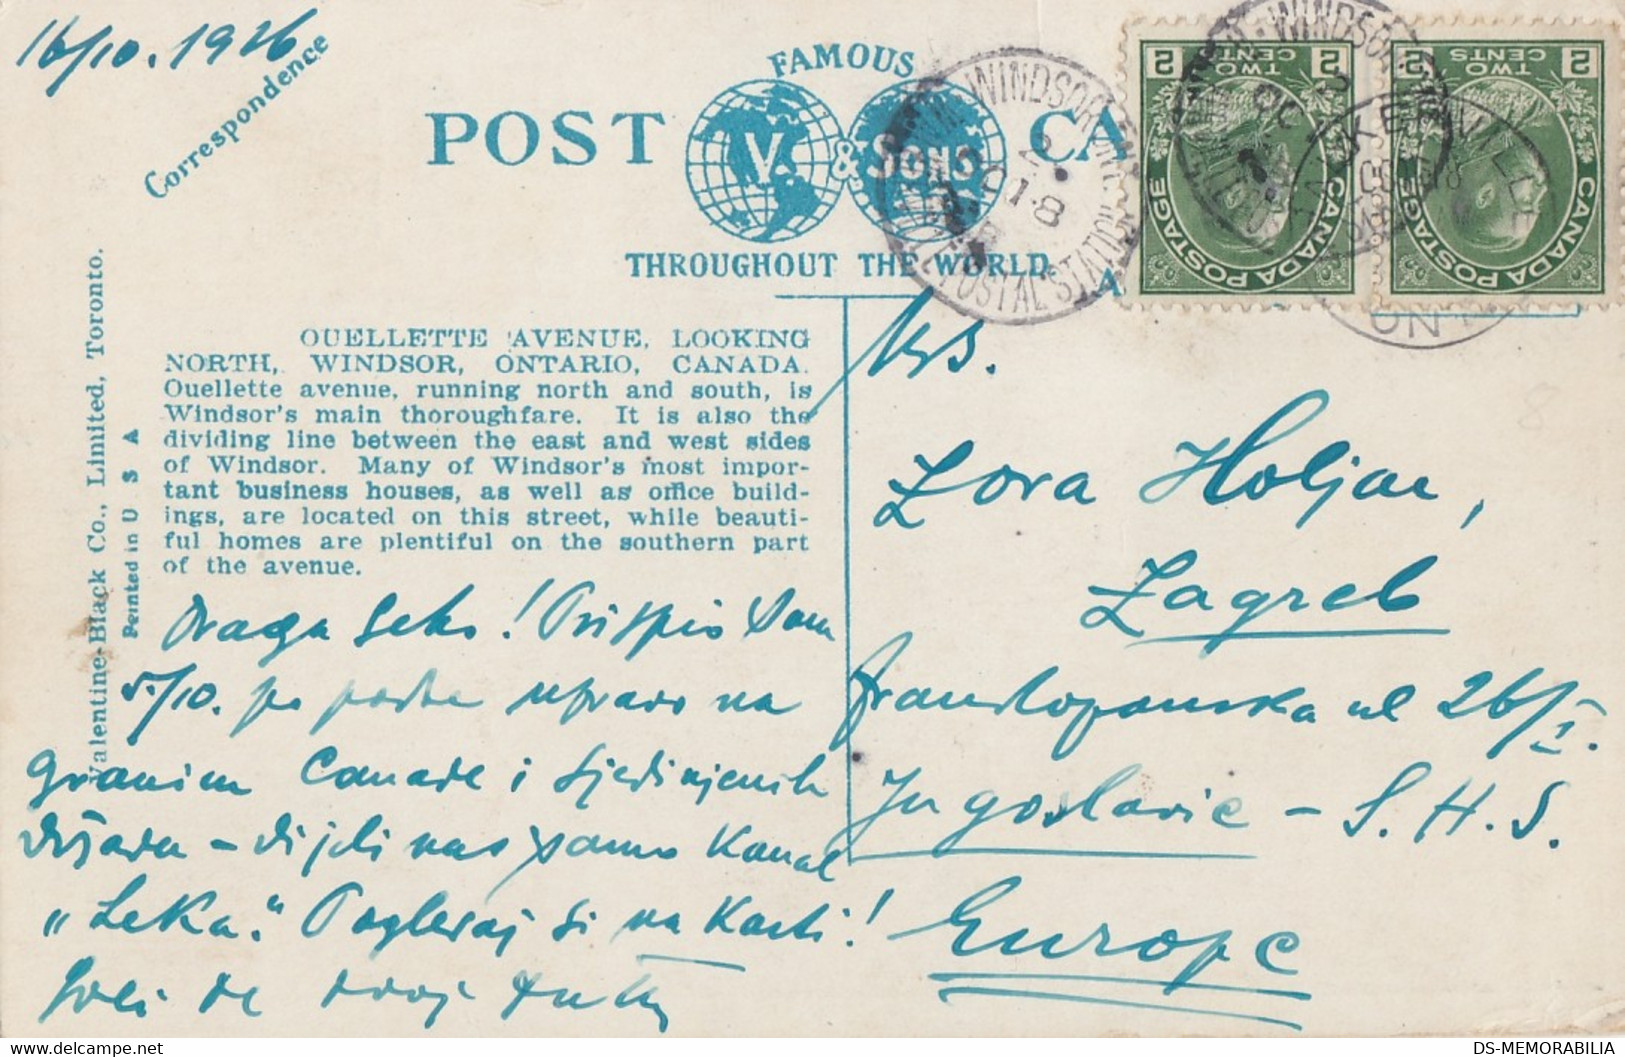 16/10. 1926
Correspondence
FAMOUS
POST CA
V. & Sons
THROUGHOUT THE WORLD.
WINDSOR
POSTAL STATION
2 CENTS 2
TWO
CANADA POSTAGE
2 CENTS 2
TWO
CANADA POSTAGE
WALKERVILLE
ONT
Valentine-Black Co., Limited, Toronto.
Printed in U S A
OUELLETTE AVENUE, LOOKING
NORTH, WINDSOR, ONTARIO, CANADA.
Ouellette avenue, running north and south, is
Windsor's main thoroughfare. It is also the
dividing line between the east and west sides
of Windsor. Many of Windsor's most impor-
tant business houses, as well as office build-
ings, are located on this street, while beauti-
ful homes are plentiful on the southern part
of the avenue.
Draga Seko! Prispio sam
5/10. po upravo na
granicu Canade i Sjedinjenih
država – dijeli nas samo kanal
"Leka". Pogledaj si na karti!
Voli te tvoj
Mrs.
Zora Holjac,
Zagreb
Frankopanska ul 26/I.
Jugoslavie – S.H.S.
Europe
8
DS-MEMORABILIA